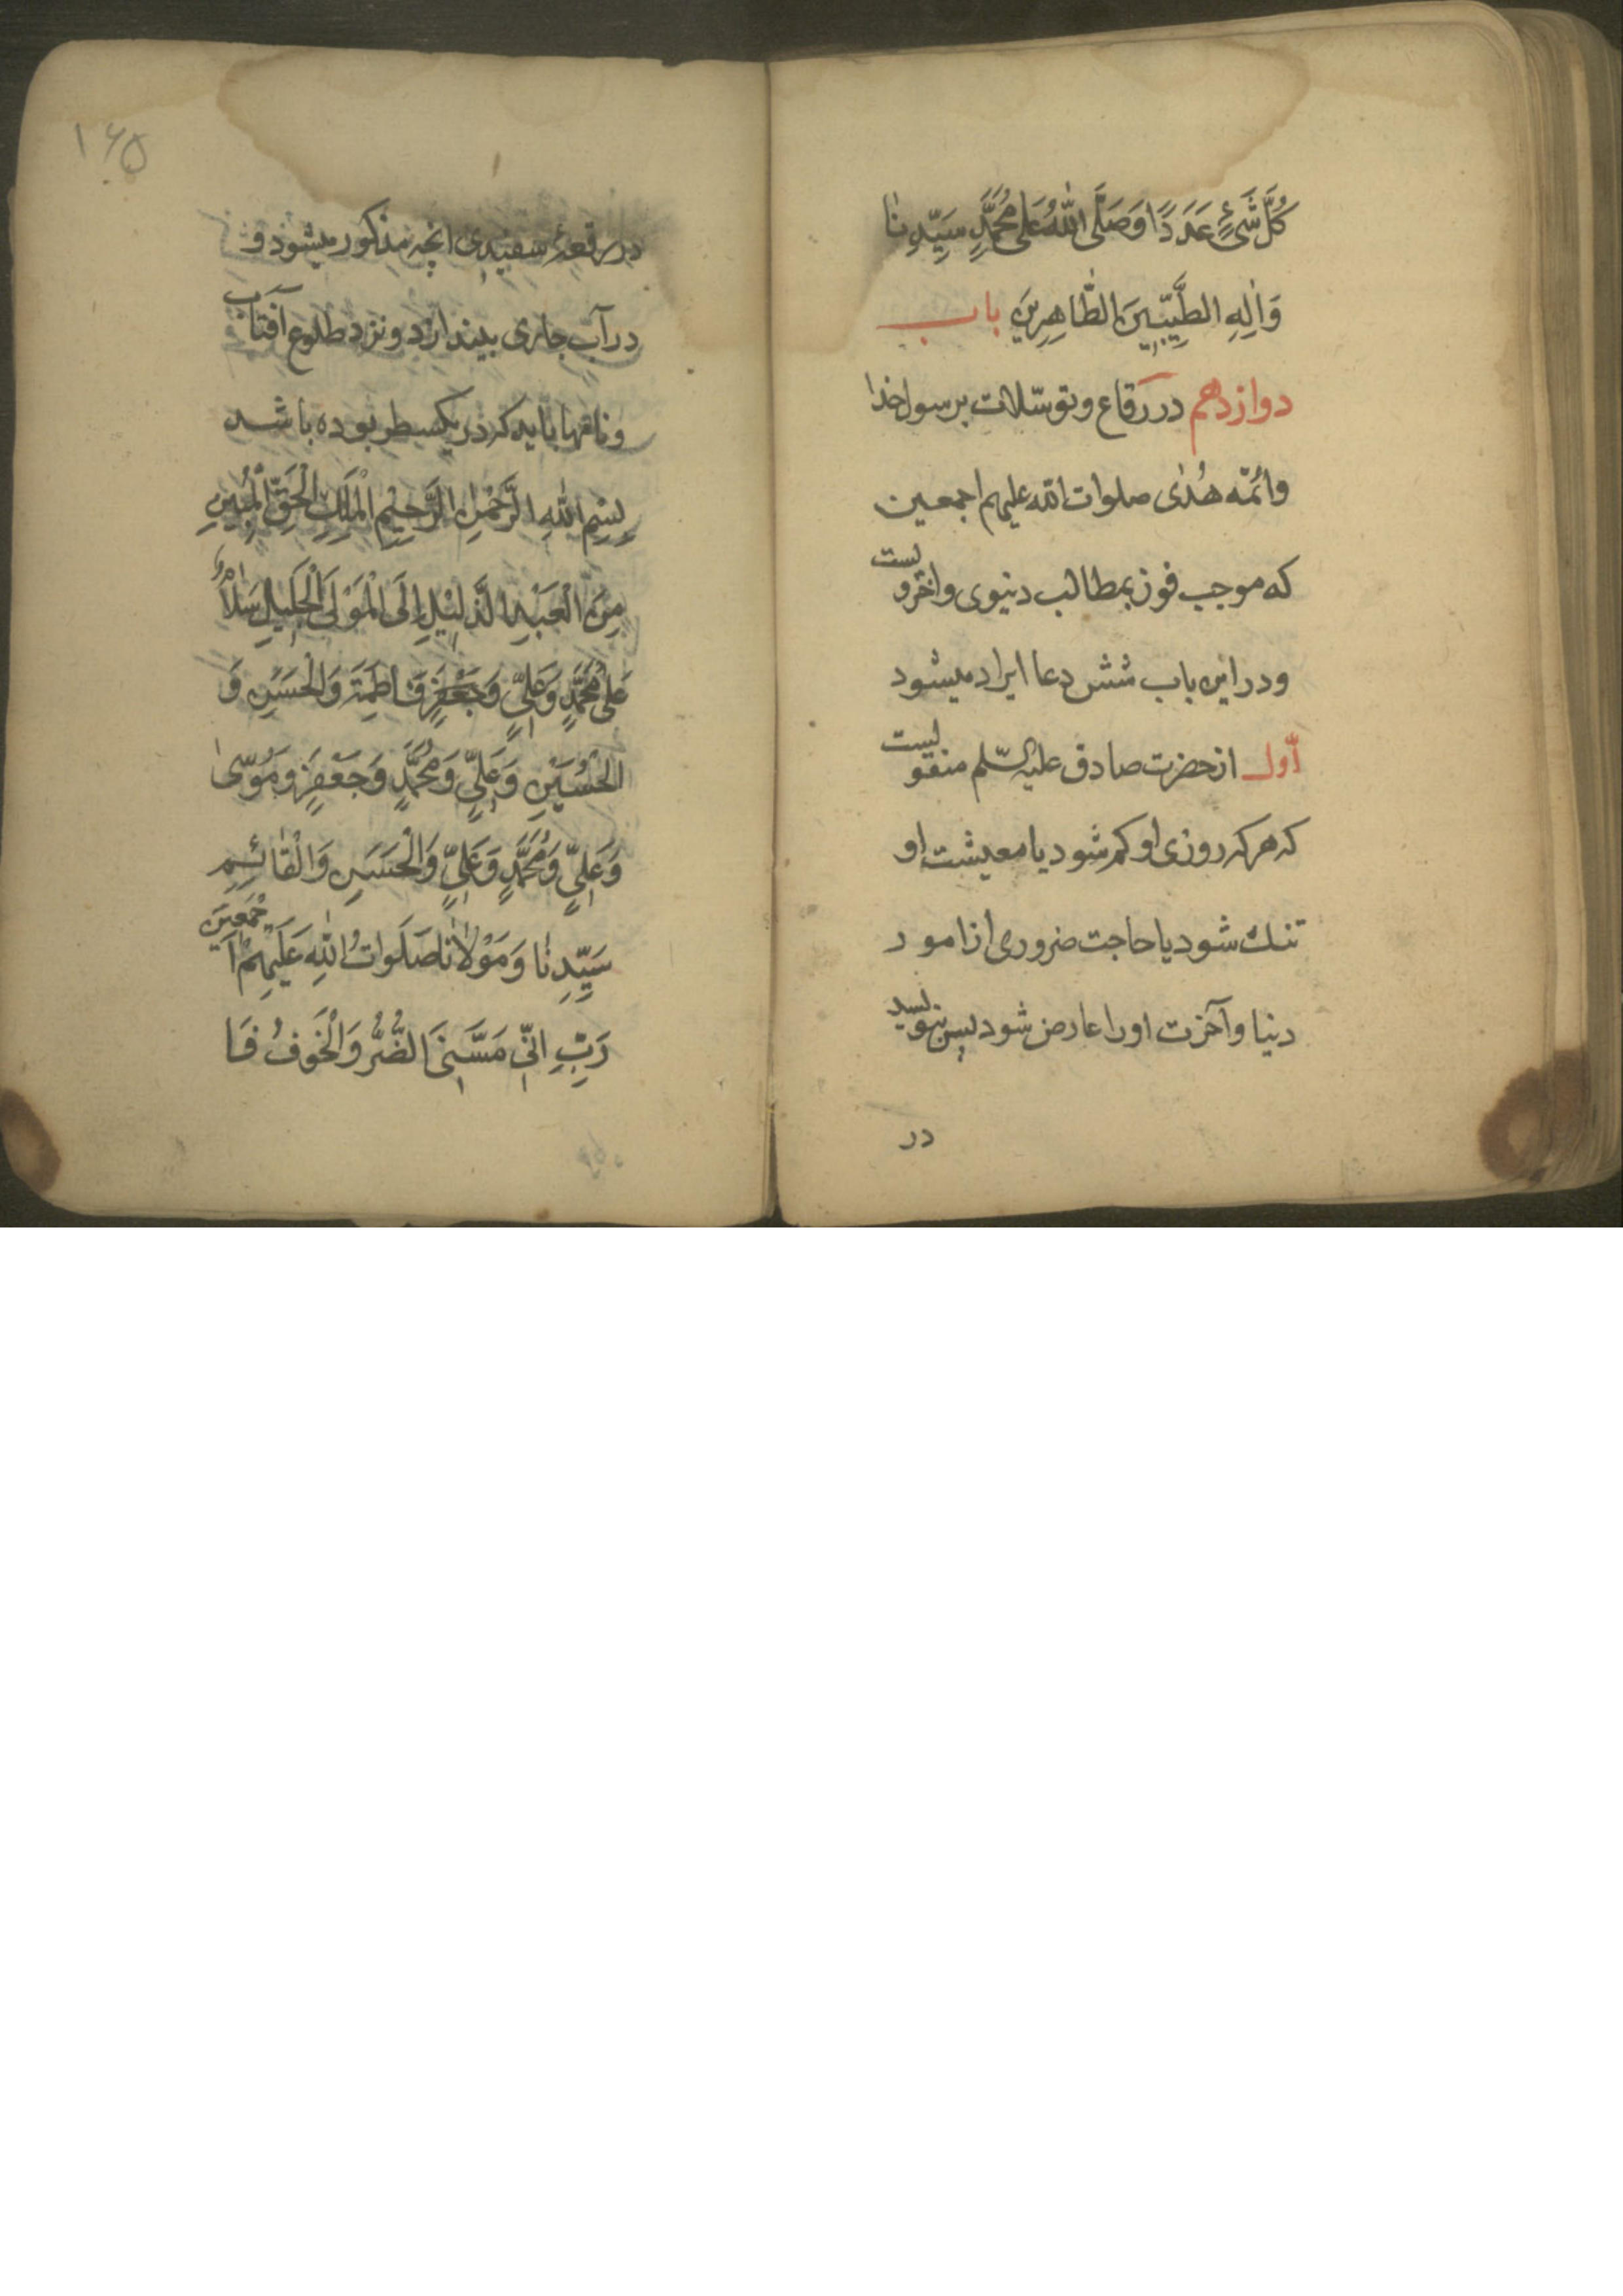 كُلَّ شَيْءٍ عَدَدًا وَصَلَّى اللّٰهُ عَلىٰ مُحَمَّدٍ سَيِّدِنٰا
وَاٰلِهِ الطَّيِّبِيْنَ الطّٰاهِرِيْنَ باب
دوازدهم در رقاع و توسّلات برسول خدا
وائمّه هُدٰى صلوات اللّه عليهم اجمعين
كه موجب فوز بمطالب دنيوى واخرويست
ودر اين باب شش دعا ايراد ميشود
اوّل از حضرت صادق عليه السّلم منقولیست
كه هر كه روزى او كم شود يا معيشت او
تنك شود يا حاجت ضرورى از امور
دنيا وآخرت او را عارض شود پس بنويسد
در
۱۶۵
در رقعهٔ سفيدى انچه مذكور ميشود و
در آب جارى بيندازد و نزد طلوع آفتاب
ونامها بايد كه در يكسطر بوده باشد
بِسْمِ اللّٰهِ الرَّحْمٰنِ الرَّحِيْمِ الْمَلِكِ الْحَقِّ الْمُبِيْنِ
مِنَ الْعَبْدِ الذَّلِيْلِ اِلَى الْمَوْلَى الْجَلِيْلِ سَلٰامٌ
عَلىٰ مُحَمَّدٍ وَعَلِيٍّ وَجَعْفَرٍ فَاطِمَةَ وَالْحَسَنِ وَ
الْحُسَيْنِ وَعَلِيٍّ وَمُحَمَّدٍ وَجَعْفَرٍ وَمُوسٰى
وَعَلِيٍّ وَمُحَمَّدٍ وَعَلِيٍّ وَالْحَسَنِ وَالْقٰائِمِ
سَيِّدِنٰا وَمَوْلاٰنٰا صَلَوٰاتُ اللّٰهِ عَلَيْهِمْ اَجْمَعِيْنَ
رَبِّ اِنِّيْ مَسَّنِيَ الضُّرُّ وَالْخَوْفُ فَا